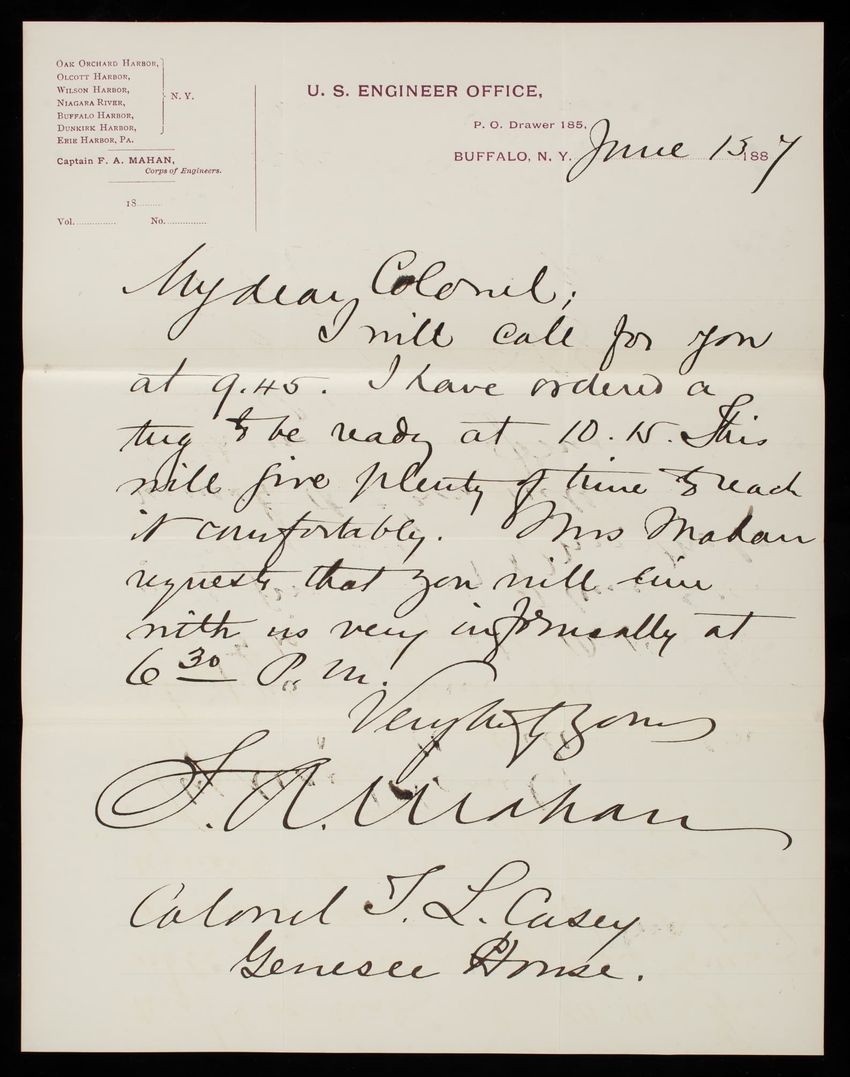 Oak Orchard Harbor,
Olcott Harbor,
Wilson Harbor,
Niagara River,
Buffalo Harbor,
Dunkirk Harbor,
N. Y.
Erie Harbor, Pa.
Captain F. A. MAHAN,
Corps of Engineers.
18.........
Vol............... No...............
U. S. ENGINEER OFFICE,
P. O. Drawer 185,
BUFFALO, N. Y. June 15 1887
My dear Colonel;
I will call for you
at 9.45. I have ordered a
tug to be ready at 10.15. This
will give plenty of time to reach
it comfortably. Mrs Mahan
requests that you will dine
with us very informally at
6 30 P.M.
Very truly yours
F. A. Mahan
Colonel T. L. Casey
Genesee House.